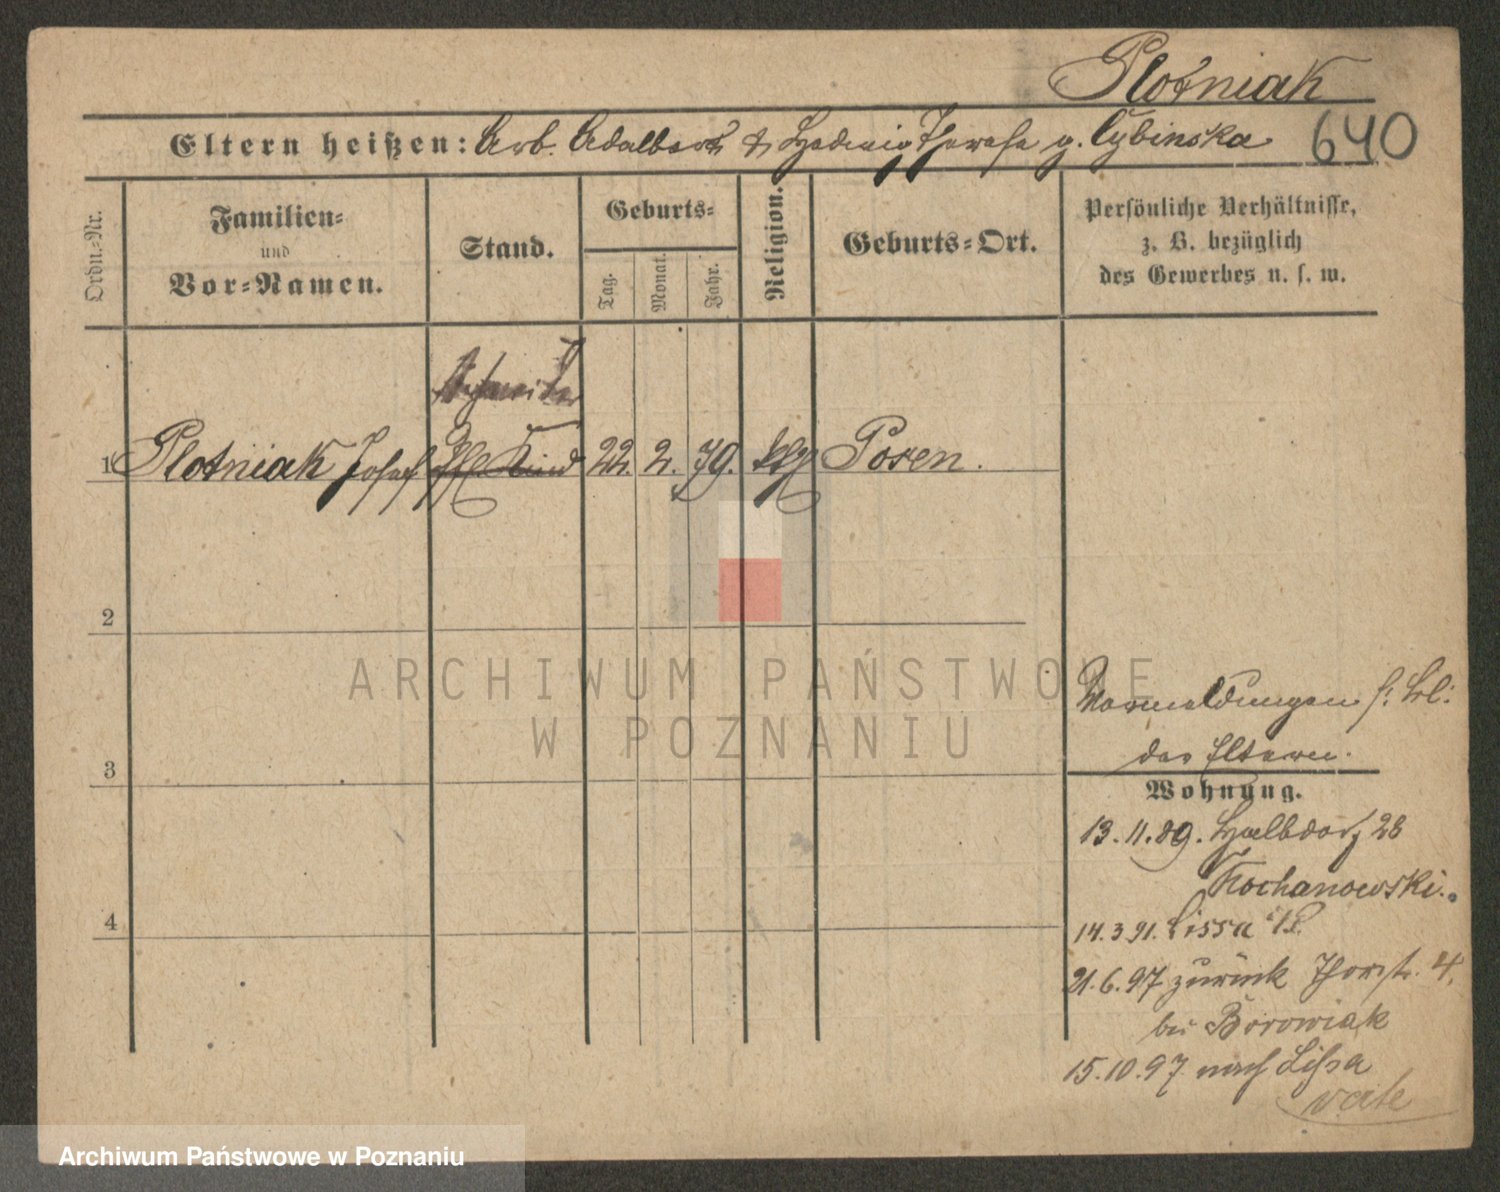 Plotniak
Eltern heißen: Arb. Adalbert & Hedwig Therese g. Cybinska 640
Ordn.-Nr.
Familien-
und
Vor-Namen.
Stand.
Geburts-
Tag.
Monat.
Jahr.
Religion.
Geburts-Ort.
Persönliche Verhältnisse,
z. B. bezüglich
des Gewerbes u. s. w.
1 Plotniak Josef Kind 22. 2. 79. kth Posen.
2
3
4
Vormeldungen s. bei
den Eltern.
Wohnung.
13.11.89. Halbdorf 28
Kochanowski.
14.3.91. Lissa i/P.
21.6.97 zurück Thorstr. 4.
bei Borowiak
15.10.97 nach Lissa
ARCHIWUM PAŃSTWOWE
W POZNANIU
Archiwum Państwowe w Poznaniu